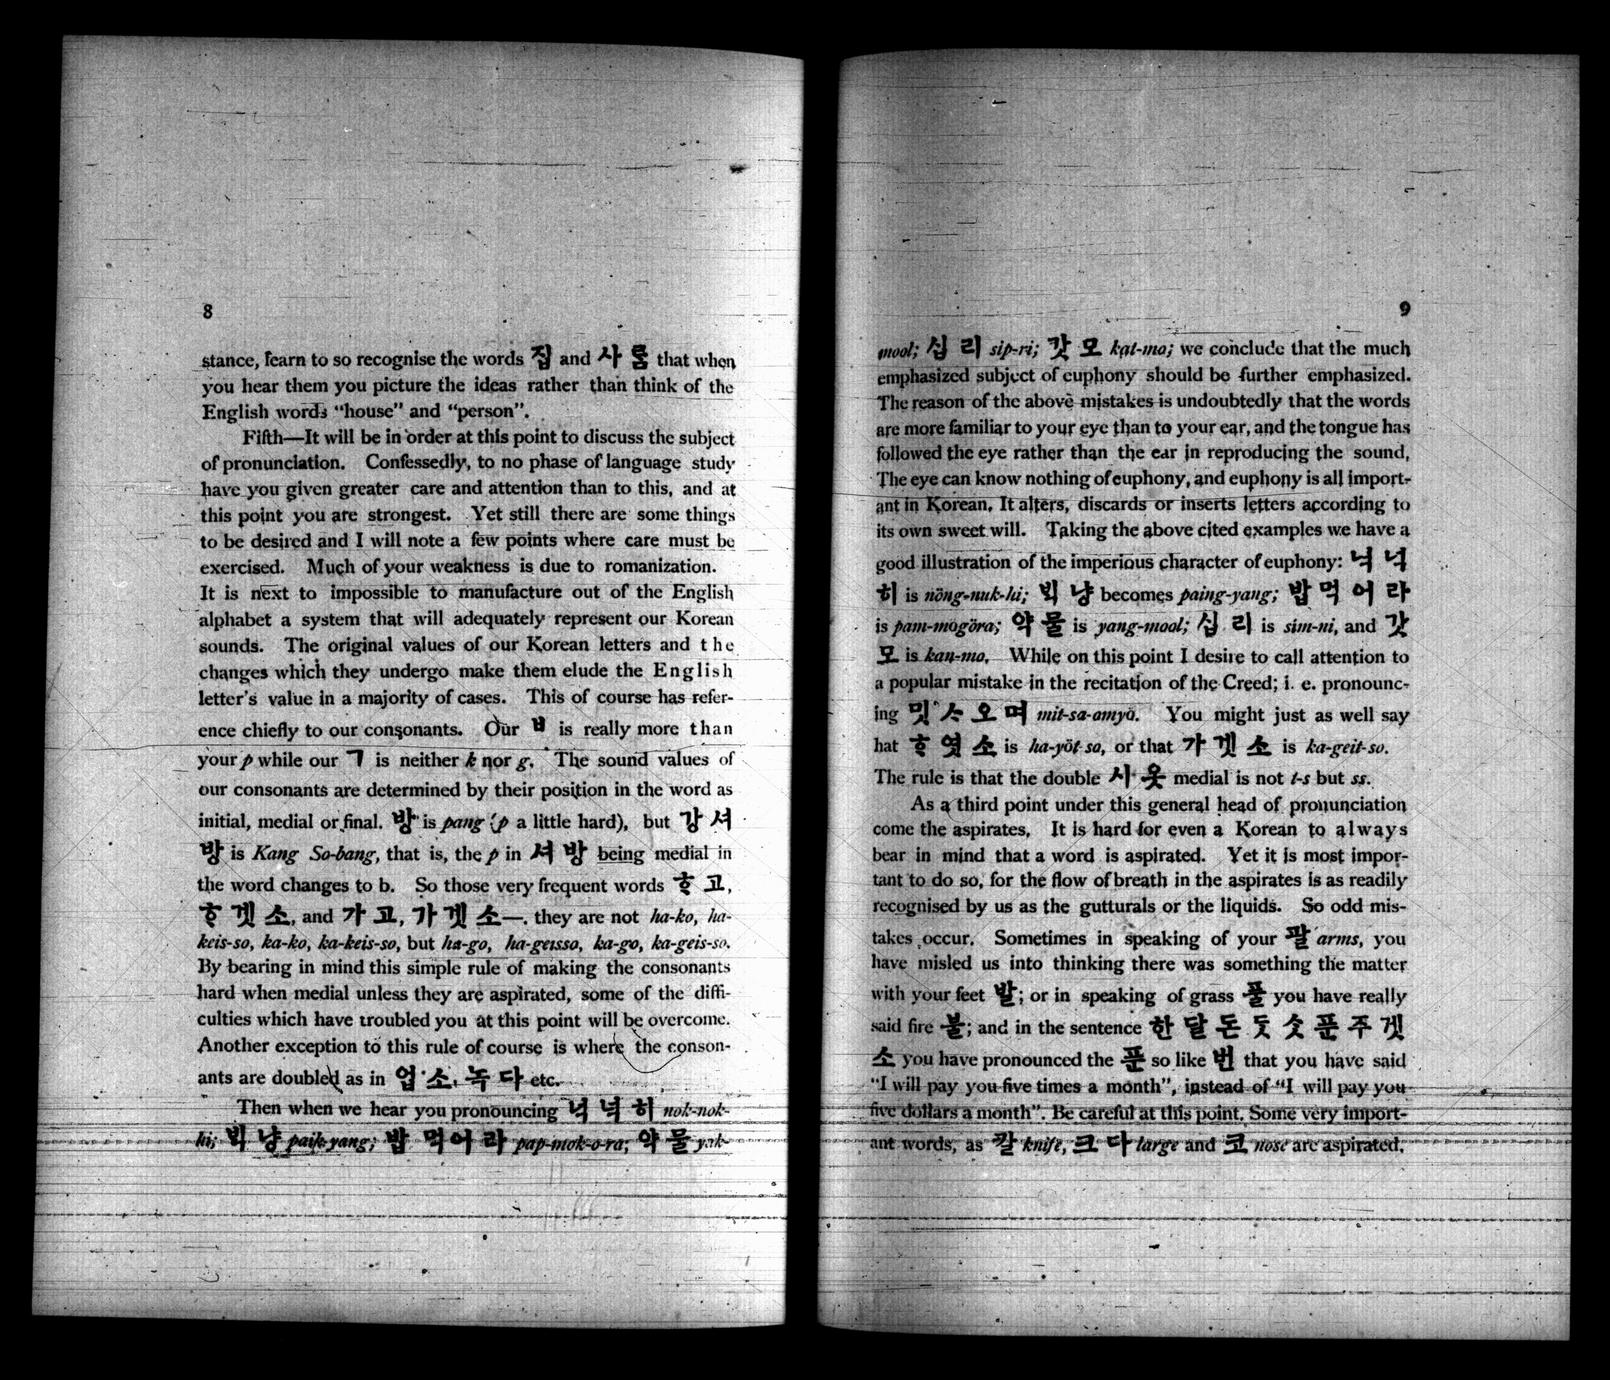 8
stance, learn to so recognise the words 집 and 사 ᄅᆞᆷ that when
you hear them you picture the ideas rather than think of the
English words "house" and "person".
Fifth—It will be in order at this point to discuss the subject
of pronunciation. Confessedly, to no phase of language study
have you given greater care and attention than to this, and at
this point you are strongest. Yet still there are some things
to be desired and I will note a few points where care must be
exercised. Much of your weakness is due to romanization.
It is next to impossible to manufacture out of the English
alphabet a system that will adequately represent our Korean
sounds. The original values of our Korean letters and the
changes which they undergo make them elude the English
letter's value in a majority of cases. This of course has refer-
ence chiefly to our consonants. Our ㅂ is really more than
your p while our ㄱ is neither k nor g. The sound values of
our consonants are determined by their position in the word as
initial, medial or final. 방 is pang (p a little hard), but 강 셔
방 is Kang So-bang, that is, the p in 셔 방 being medial in
the word changes to b. So those very frequent words ᄒᆞ 고,
ᄒᆞ 겟 소, and 가 고, 가 겟 소—. they are not ha-ko, ha-
keis-so, ka-ko, ka-keis-so, but ha-go, ha-geisso, ka-go, ka-geis-so.
By bearing in mind this simple rule of making the consonants
hard when medial unless they are aspirated, some of the diffi-
culties which have troubled you at this point will be overcome.
Another exception to this rule of course is where the conson-
ants are doubled as in 업 소, 녹 다 etc.
Then when we hear you pronouncing 넉 넉 히 nok-nok-
hi; ᄇᆡᆨ 냥 paik-yang; 밥 먹 어 라 pap-mok-o-ra; 약 물 yak-
9
mool; 십 리 sip-ri; 갓 모 kat-mo; we conclude that the much
emphasized subject of euphony should be further emphasized.
The reason of the above mistakes is undoubtedly that the words
are more familiar to your eye than to your ear, and the tongue has
followed the eye rather than the ear in reproducing the sound,
The eye can know nothing of euphony, and euphony is all import-
ant in Korean. It alters, discards or inserts letters according to
its own sweet will. Taking the above cited examples we have a
good illustration of the imperious character of euphony: 넉 넉
히 is nöng-nuk-hi; ᄇᆡᆨ 냥 becomes paing-yang; 밥 먹 어 라
is pam-mogöra; 약 물 is yang-mool; 십 리 is sim-ni, and 갓
모 is kan-mo. While on this point I desire to call attention to
a popular mistake in the recitation of the Creed; i. e. pronounc-
ing 밋 ᄉᆞ 오 며 mit-sa-omyö. You might just as well say
hat ᄒᆞ 엿 소 is ha-yöt-so, or that 가 겟 소 is ka-geit-so.
The rule is that the double 시 옷 medial is not t-s but ss.
As a third point under this general head of pronunciation
come the aspirates. It is hard for even a Korean to always
bear in mind that a word is aspirated. Yet it is most impor-
tant to do so, for the flow of breath in the aspirates is as readily
recognised by us as the gutturals or the liquids. So odd mis-
takes occur. Sometimes in speaking of your 팔 arms, you
have misled us into thinking there was something the matter
with your feet 발; or in speaking of grass 풀 you have really
said fire 불; and in the sentence 한 달 돈 ᄃᆞᆺ ᄉᆞᆺ 푼 주 겟
소 you have pronounced the 푼 so like 번 that you have said
"I will pay you five times a month", instead of "I will pay you
five dollars a month". Be careful at this point. Some very import-
ant words, as 칼 knife, 크 다 large and 코 nose are aspirated.